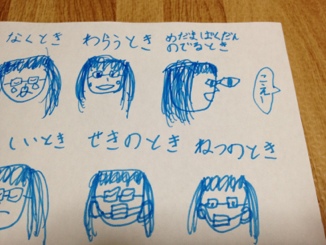 なくとき
わらうとき
めだまばくだん
のでるとき
こえー
しいとき
せきのとき
ねつのとき